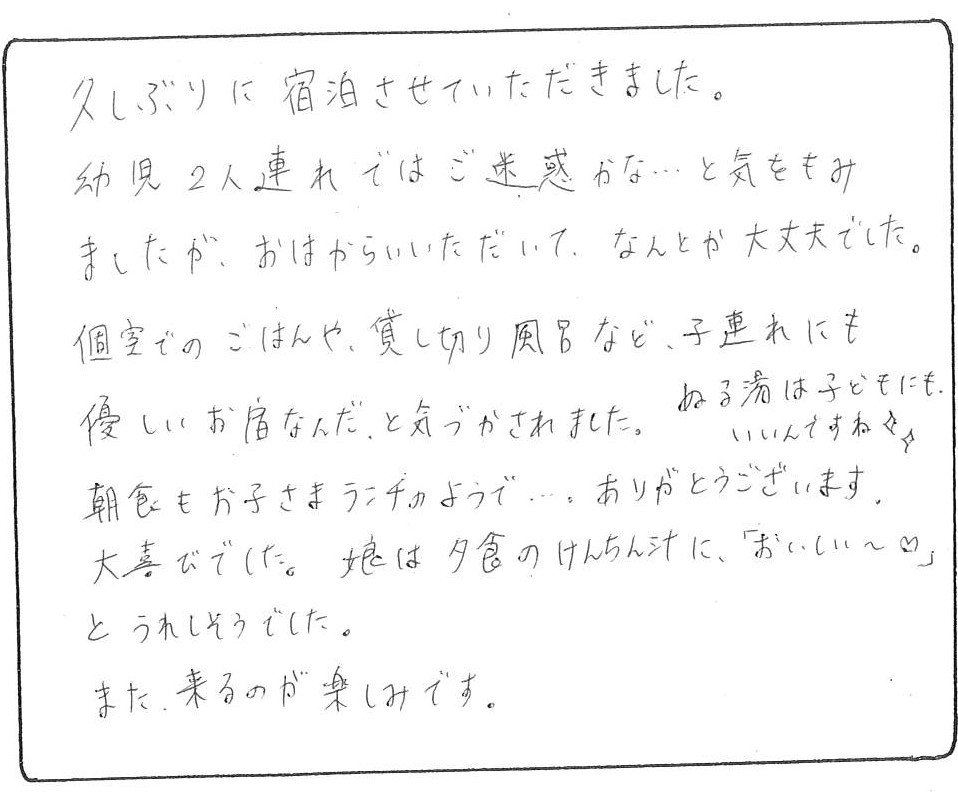 久しぶりに宿泊させていただきました。
幼児2人連れではご迷惑かな…と気をもみ
ましたが、おはからいいただいて、なんとか大丈夫でした。
個室でのごはんや、貸し切り風呂など、子連れにも
優しいお宿なんだ、と気づかされました。
ぬる湯は子どもにも、
いいんですね✧✧
朝食もお子さまランチのようで…。ありがとうございます。
大喜びでした。娘は夕食のけんちん汁に、「おいしい～♡」
とうれしそうでした。
また、来るのが楽しみです。